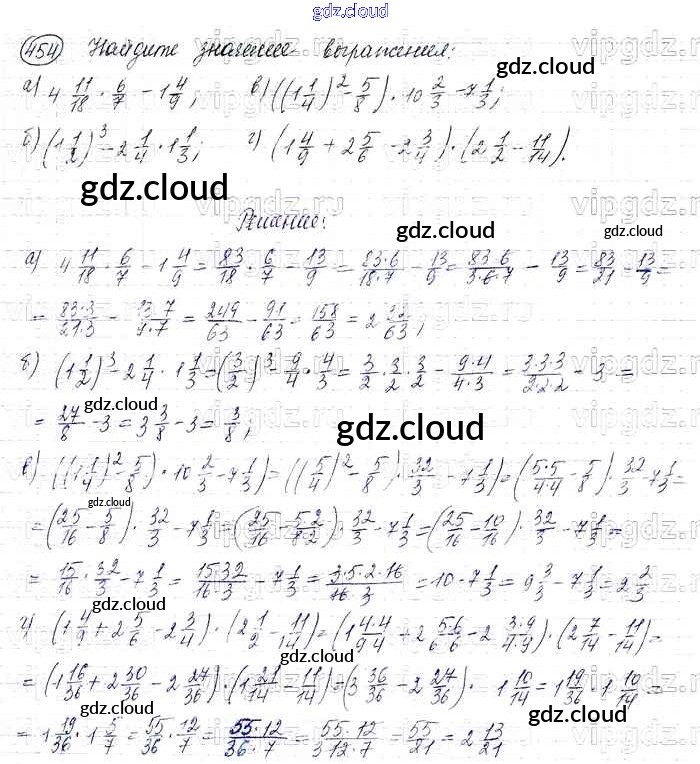 gdz.cloud
454 Найдите значение выражения:
а) 4 11/18 · 6/7 - 1 4/9; в) ((1 1/4)² - 5/8) · 10 2/3 - 7 1/3;
б) (1 1/2)³ - 2 1/4 · 1 1/3; г) (1 4/9 + 2 5/6 - 2 3/4) · (2 1/2 - 11/14).
Решение:
а) 4 11/18 · 6/7 - 1 4/9 = 83/18 · 6/7 - 13/9 = 83·6/18·7 - 13/9 = 83·6/3·6·7 - 13/9 = 83/21 - 13/9 =
= 83·3/21·3 - 13·7/9·7 = 249/63 - 91/63 = 158/63 = 2 32/63;
б) (1 1/2)³ - 2 1/4 · 1 1/3 = (3/2)³ - 9/4 · 4/3 = 3/2 · 3/2 · 3/2 - 9·4/4·3 = 3·3·3/2·2·2 - 3 =
= 27/8 - 3 = 3 3/8 - 3 = 3/8;
в) ((1 1/4)² - 5/8) · 10 2/3 - 7 1/3 = ((5/4)² - 5/8) · 32/3 - 7 1/3 = (5·5/4·4 - 5/8) · 32/3 - 7 1/3 =
= (25/16 - 5/8) · 32/3 - 7 1/3 = (25/16 - 5·2/8·2) · 32/3 - 7 1/3 = (25/16 - 10/16) · 32/3 - 7 1/3 =
= 15/16 · 32/3 - 7 1/3 = 15·32/16·3 - 7 1/3 = 3·5·2·16/16·3 = 10 - 7 1/3 = 9 3/3 - 7 1/3 = 2 2/3
г) (1 4/9 + 2 5/6 - 2 3/4) · (2 1/2 - 11/14) = (1 4·4/9·4 + 2 5·6/6·6 - 2 3·9/4·9) · (2 7/14 - 11/14) =
= (1 16/36 + 2 30/36 - 2 27/36) · (1 21/14 - 11/14) = (3 36/36 - 2 27/36) · 1 10/14 = 1 19/36 · 1 10/14 =
= 1 19/36 · 1 5/7 = 55/36 · 12/7 = 55·12/36·7 = 55·12/3·12·7 = 55/21 = 2 13/21